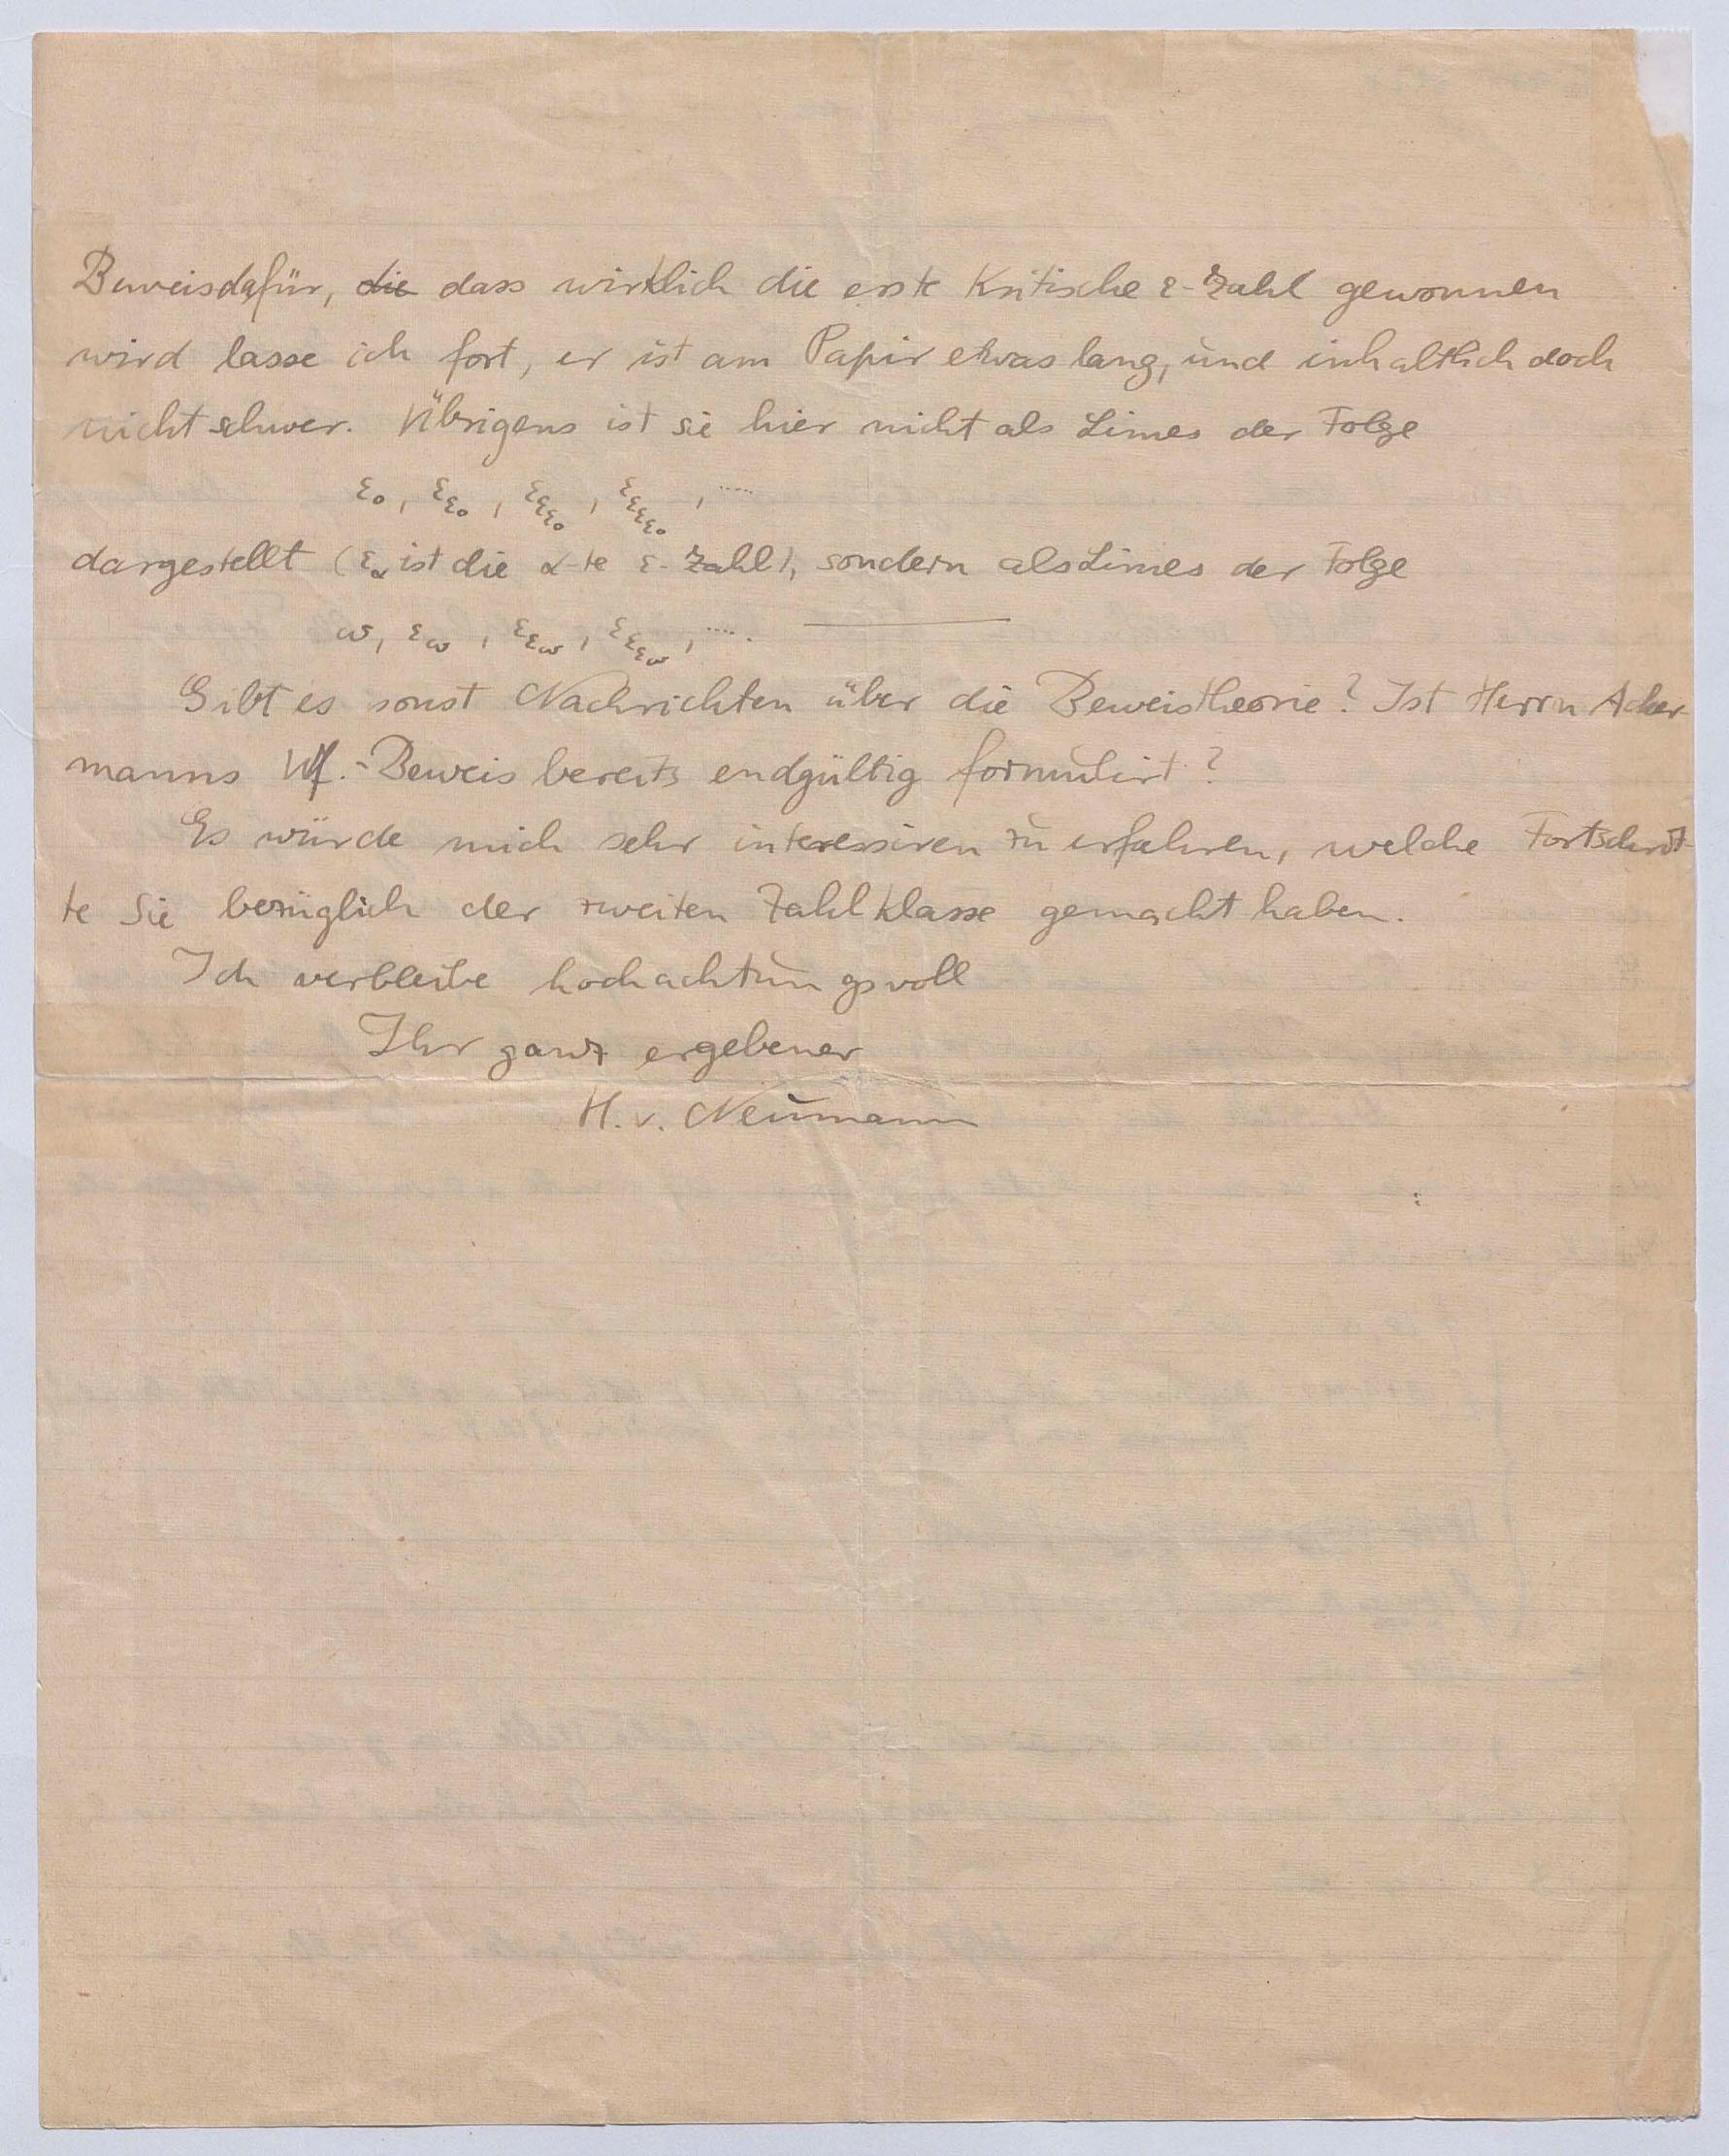 Beweis dafür, die dass wirklich die erste kritische ε-Zahl gewonnen
wird lasse ich fort, er ist am Papir etwas lang, und inhaltlich doch
nicht schwer. Übrigens ist sie hier nicht als Limes der Folge
ε₀, ε_ε₀, ε_ε_ε₀, ε_ε_ε_ε₀, .....
dargestellt (ε_α ist die α-te ε-Zahl), sondern als Limes der Folge
ω, ε_ω, ε_ε_ω, ε_ε_ε_ω, .....
Gibt es sonst Nachrichten über die Beweistheorie? Ist Herrn Acker-
manns Wf.-Beweis bereits endgültig formulirt?
Es würde mich sehr interessiren zu erfahren, welche Fortschrit-
te Sie bezüglich der zweiten Zahlklasse gemacht haben.
Ich verbleibe hochachtungsvoll
Ihr ganz ergebener
H. v. Neumann